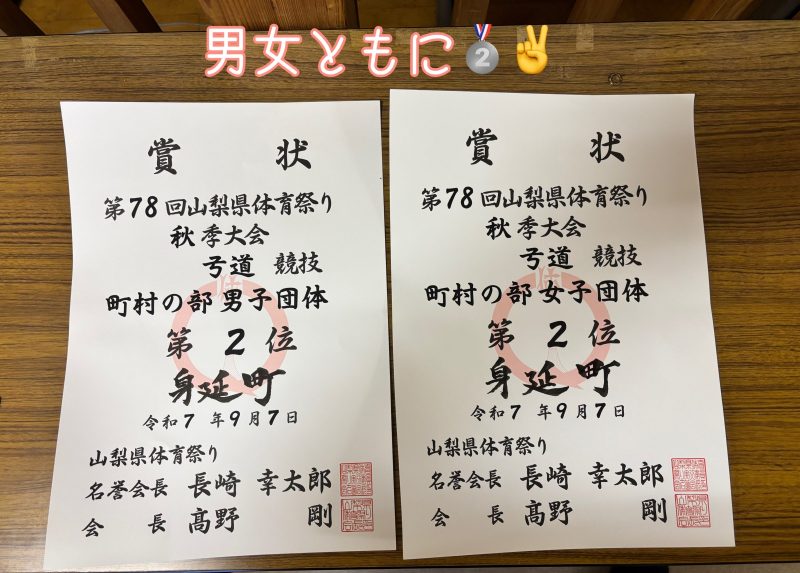 男女ともに🥈✌
賞状
第78回山梨県体育祭り
秋季大会
弓道 競技
町村の部 男子団体
第 2 位
身延町
令和7 年9月7日
山梨県体育祭り
名誉会長 長崎 幸太郎
会長 髙野 剛
賞状
第78回山梨県体育祭り
秋季大会
弓道 競技
町村の部 女子団体
第 2 位
身延町
令和7 年9月7日
山梨県体育祭り
名誉会長 長崎 幸太郎
会長 髙野 剛